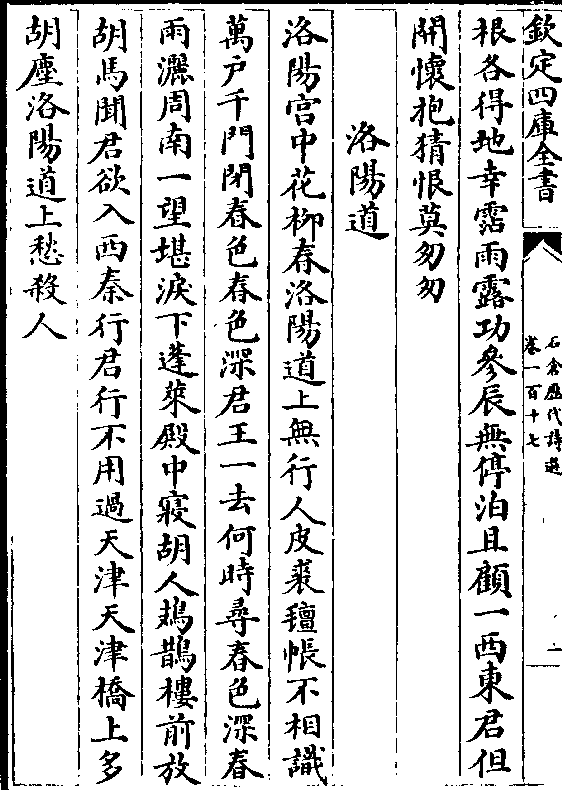 欽定四庫全書
石倉歷代詩選
卷一百十七
根各得地幸霑雨露功參辰無停泊且顧一西東君但
開懷抱猜恨莫匆匆
洛陽道
洛陽宫中花柳春洛陽道上無行人皮裘氊帳不相識
萬户千門閉春色春色深君王一去何時尋春色深春
雨灑周南一望堪淚下蓬萊殿中寢胡人鳷鵲樓前放
胡馬聞君欲入西秦行君行不用過天津天津橋上多
胡塵洛陽道上愁殺人